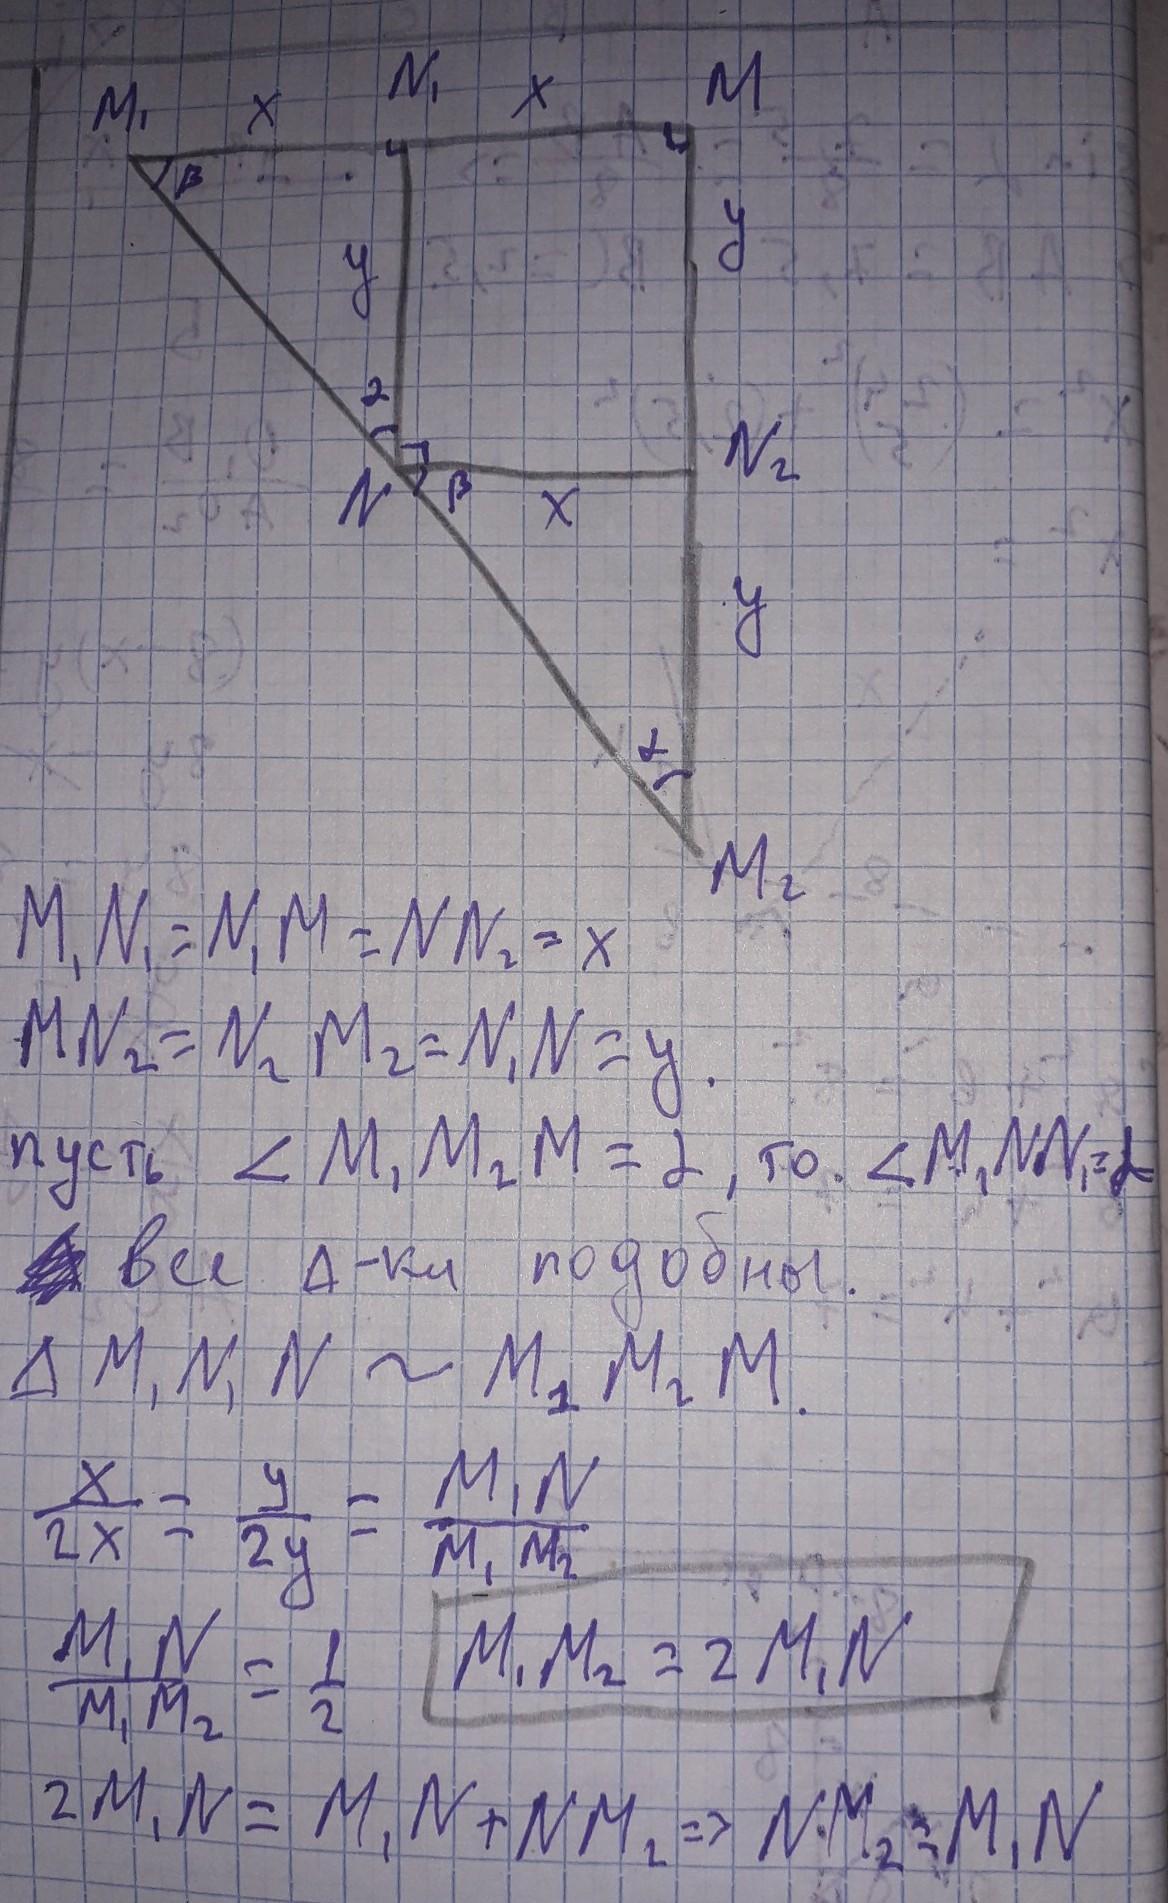 M₁ x N₁ x M
β
y y
α
N β x N₂
y
α
M₂
M₁N₁ = N₁M = NN₂ = x
MN₂ = N₂M₂ = N₁N = y.
пусть ∠M₁M₂M = α, то. ∠M₁NN₁ = α
все Δ-ки подобны.
Δ M₁N₁N ~ M₁M₂M.
x/2x = y/2y = M₁N/M₁M₂
M₁N/M₁M₂ = 1/2 M₁M₂ = 2M₁N
2M₁N = M₁N + NM₂ => NM₂ = M₁N